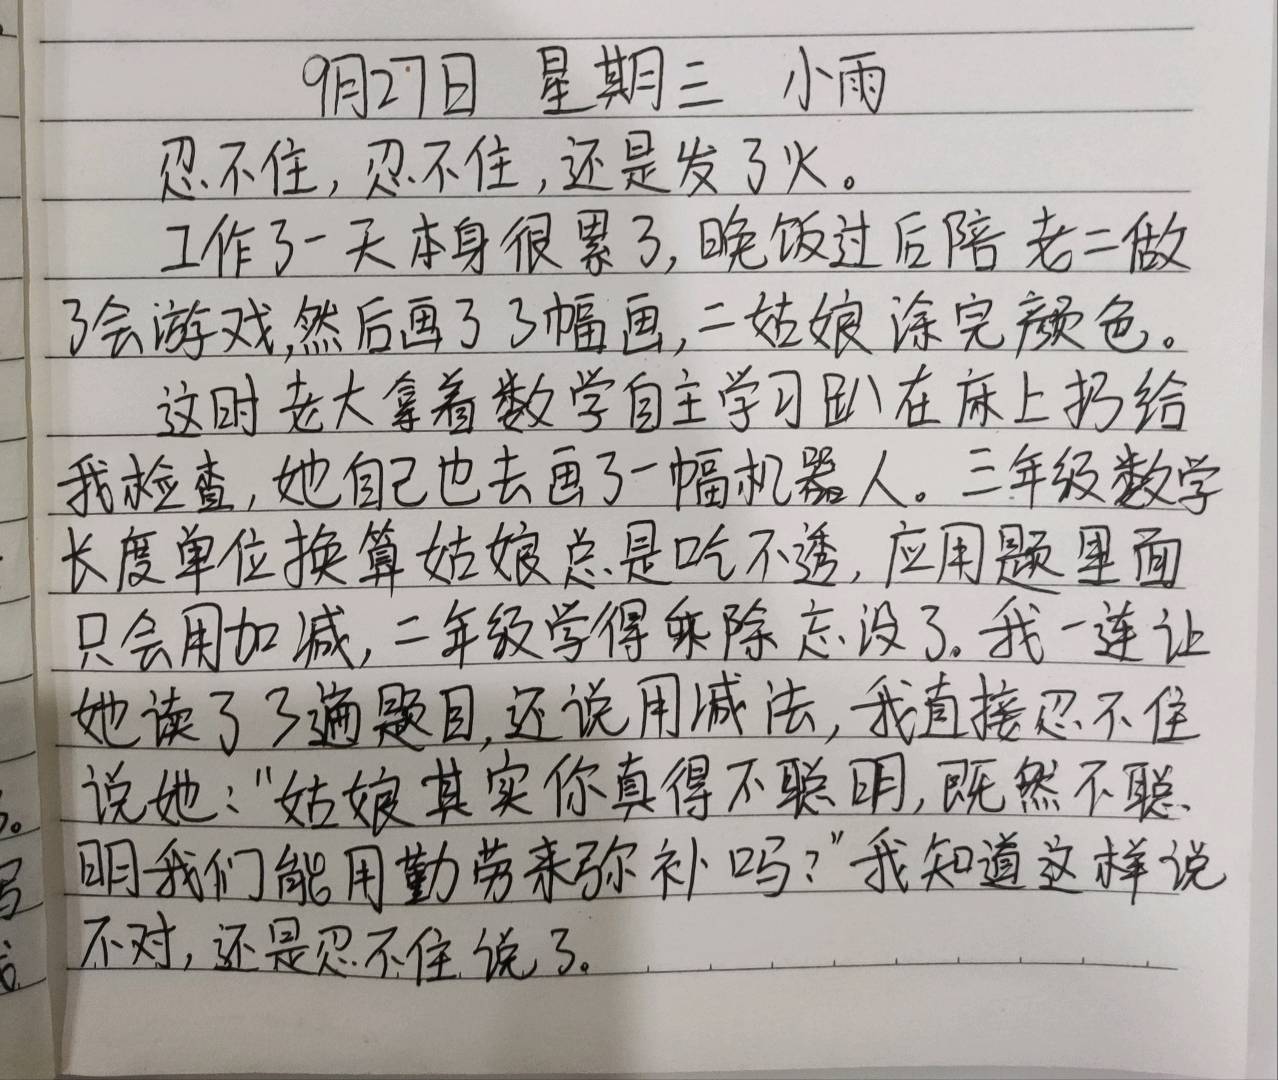 9月27日 星期三 小雨
忍不住,忍不住,还是发了火。
工作了一天本身很累了,晚饭过后陪老二做
了会游戏,然后画了3幅画,二姑娘涂完颜色。
这时老大拿着数学自主学习趴在床上扔给
我检查,她自己也去画了一幅机器人。三年级数学
长度单位换算姑娘总是吃不透,应用题里面
只会用加减,二年级学得乘除忘没了。我一连让
她读了3遍题目,还说用减法,我直接忍不住
说她:"姑娘其实你真得不聪明,既然不聪
明我们能用勤劳来弥补吗?"我知道这样说
不对,还是忍不住说了。